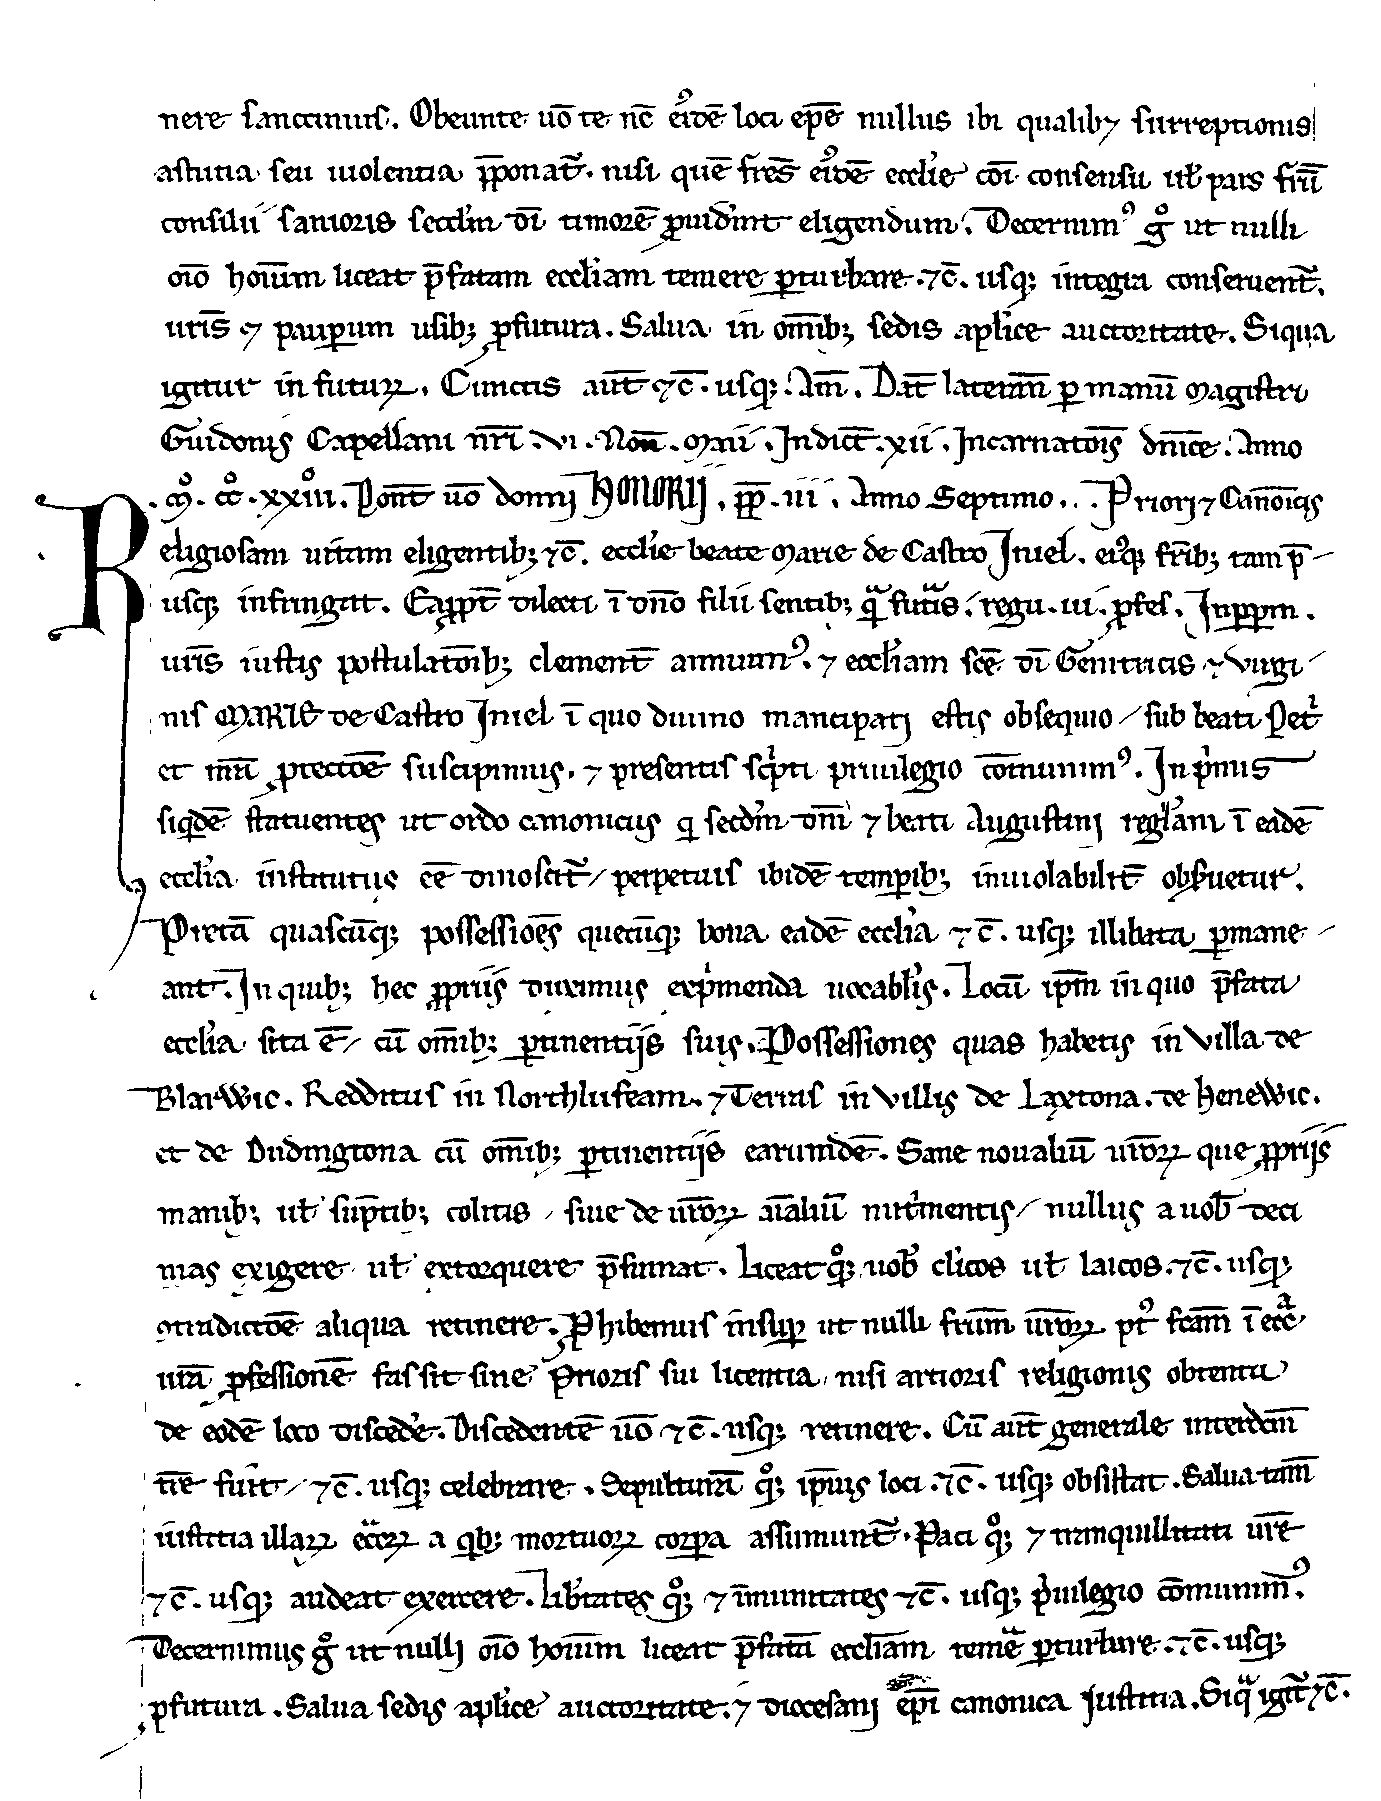 nere sanccimus. Obeunte uo̅ te nc̅ ei᷒de̅ loci epe̅ nullus ibi qualibꝫ surreptionis
astutia seu uiolentia p̅ponat᷑. nisi que̅ fres̅ ei᷒de̅ eccl'ie co̅i consensu ul' pars fr̅u̅
consilii sanioris secd'm di̅ timore̅ ꝓuid'int eligendum. Decernim᷒ gͦ ut nulli
oi̅o hoi̅um liceat p̅fatam eccl'iam temere ꝑturbare. ⁊c̅. usqꝫ integra conseruent᷑.
uris̅ ⁊ pauꝑum usibꝫ ꝓfutura. Salua in om̅ibꝫ sedis apl'ice auctoritate. Siqua
igitur in futurꝝ. Cunctis aut̅ ⁊c̅. usqꝫ. Am̅. Dat̅ lateran̅ ꝑ manu̅ magistri
Guidonis Capellani nr̅i. vi. Non̅. maii. Indict̅. xii. Incarnatois̅ dn̅ice. Anno
.mͦ. ccͦ. xxͦiii. Pont̅ uo̅ domnj HONORIJ. pp̅. iii. Anno Septimo... Priorj ⁊ Cano̅icis
Religiosam uitam eligentibꝫ ⁊c̅. eccl'ie beate marie de Castro Iniel. ei᷒qꝫ fr̅ibꝫ tam p̅
usqꝫ infringat. Eaꝓpt̅ dilecti i̅ dn̅o filii sentibꝫ qᵃ futᵃis. regu. ui. ꝓfes. Inꝑpm.
uris̅ iustis postulatoi̅bꝫ clement̅ annuim᷒. ⁊ eccl'iam sce̅ di̅ Genitricis ⁊ virgi
nis MARIE de Castro Iniel i̅ quo diuino mancipatj estis obsequio / sub beati Pet'
et nr̅a ꝓtectoe̅ suscipimus. ⁊ presentis sc'pti priuilegio co̅munim᷒. In p'mis
siqꝫde̅ statuentes ut ordo canonicus qi secd'm dm̅ ⁊ beati Augustinj regl'am i̅ eade̅
eccl'ia institutus ee̅ dinoscit᷑ / perpetuis ibide̅ temꝑibꝫ inuiolabilit̅ obs'uetur.
Pretea̅ quascu̅qꝫ possessioe̅s quecu̅qꝫ bona eade̅ eccl'ia ⁊c̅. usqꝫ illibata ꝑmane
ant. In quibꝫ hec ꝓpriis duximus exp'menda uocabl'is. Locu̅ ipm̅ in quo p̅fata
eccl'ia sita e̅ / cu̅ om̅ibꝫ ꝑtinentijs suis. Possessiones quas habetis in villa de
Blarwic. Redditus in Northluseam. ⁊ Terras in villis de Laxtona. de Henewic.
et de Dudingtona cu̅ om̅ibꝫ ꝑtinentijs earumde̅. Sane noualiu̅ uro̅ꝝ que ꝓprijs
manibꝫ ul' su̅ptibꝫ colitis / siue de uro̅ꝝ ai̅aliu̅ nut'mentis / nullus a uob̅ deci
mas exigere ul' extorquere p̅sumat. Liceat qͦꝫ uob̅ cl'icos ul' laicos. ⁊c̅. usqꝫ
ꝯtradictoe̅ aliqua retinere. Ꝓhibemus insuꝑ ut nulli fr̅um uro̅ꝝ pt᷒ fcam̅ i̅ eccᵃ
ura̅ ꝓfessione̅ fas sit sine Prioris sui licentia, nisi artioris religionis obtentu
de eode̅ loco disced'e. Discedente̅ uo̅ ⁊c̅. usqꝫ retinere. Cu̅ aut̅ generale interdcm̅
tre̅ fu'it / ⁊c̅. usqꝫ celebrare. Sepultura̅ qͦꝫ ip̅ius loci. ⁊c̅. usqꝫ obsistat. Salua tam̅
iustitia illaꝝ eccᵃꝝ a qibꝫ mortuoꝝ corpa assumunt᷑. Paci qͦꝫ ⁊ tranquillitati ure̅
⁊c̅. usqꝫ audeat exercere. Lib'tates qͦꝫ ⁊ i̅munitates ⁊c̅. usqꝫ p'uilegio co̅munim᷒.
Decernimus gͦ ut nulli oi̅o hoi̅um liceat p̅fata̅ eccl'iam temᵃe ꝑturbare. ⁊c̅. usqꝫ
ꝓfutura. Salua sedis apl'ice auctoritate. ⁊ diocesanj ep̅i canonica justitia. Siqᵃ igit᷑ ⁊c̅.